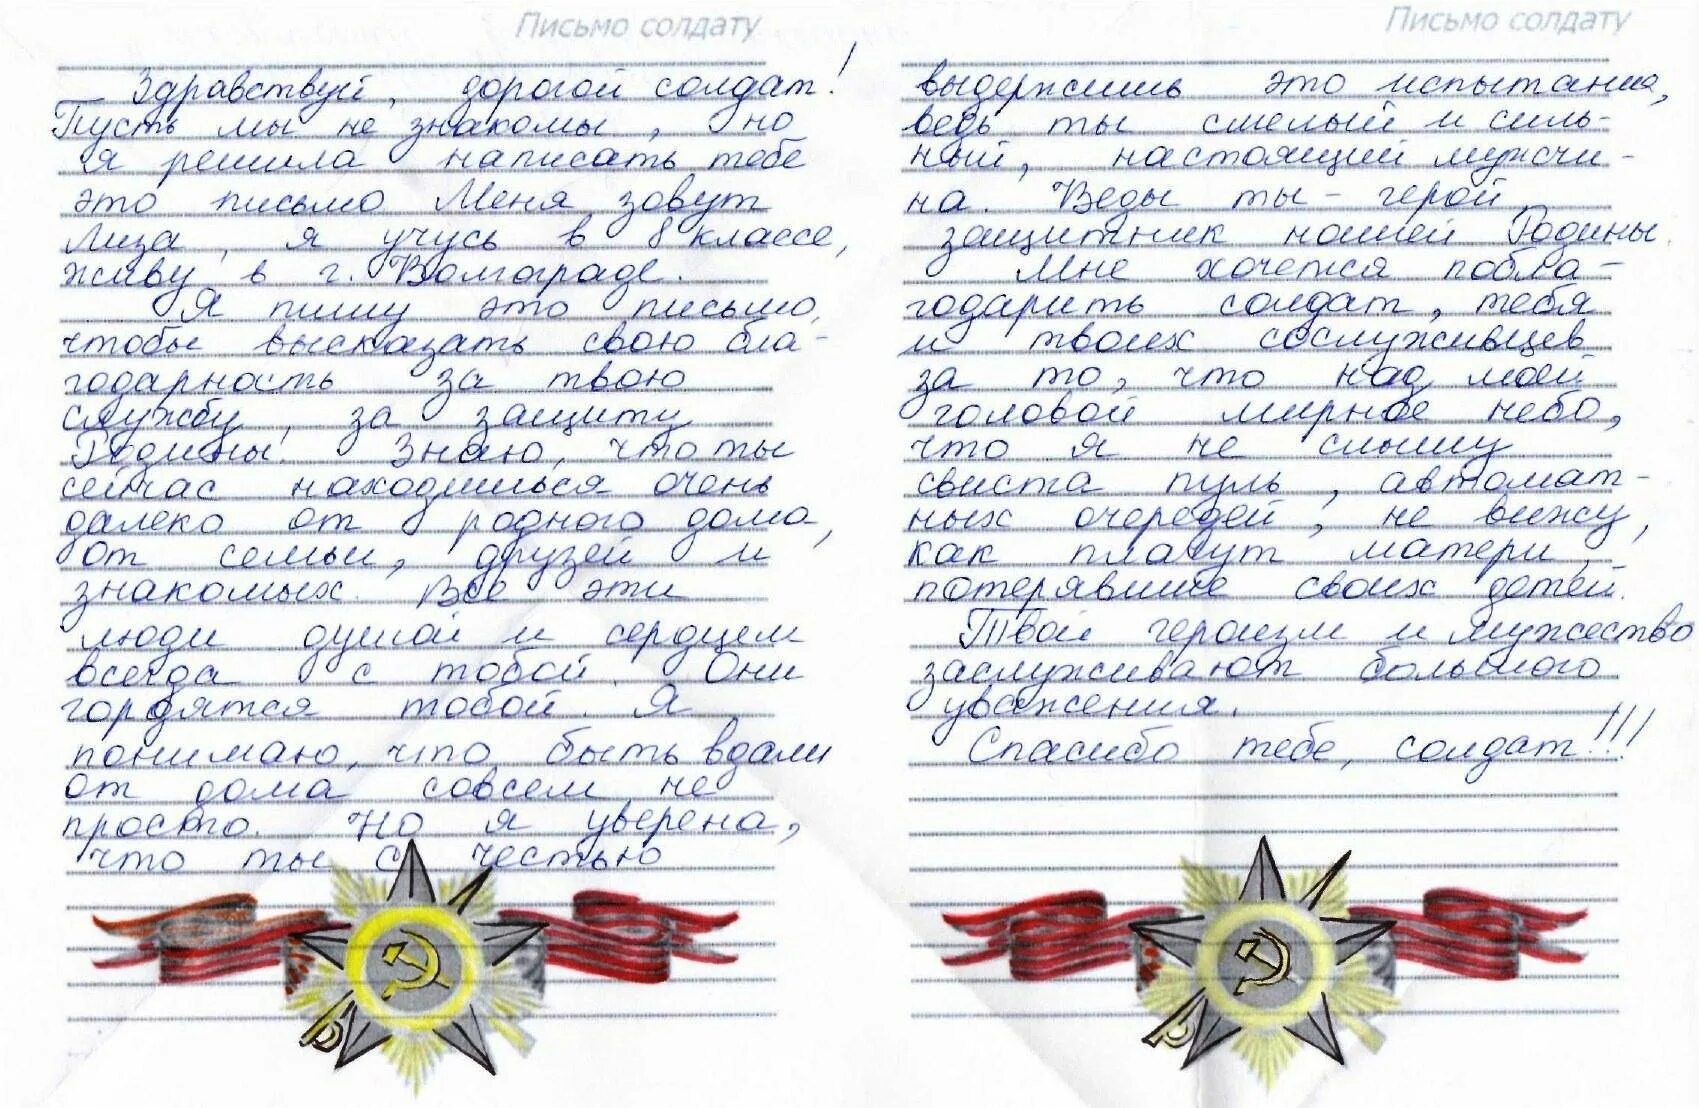 Письмо солдату
Здравствуй, дорогой солдат!
Пусть мы не знакомы, но
я решила написать тебе
это письмо Меня зовут
Лиза, я учусь в 8 классе,
живу в г. Волгограде.
Я пишу это письмо,
чтобы высказать свою бла-
годарность за твою
службу, за защиту
Родины! Знаю, что ты
сейчас находишься очень
далеко от родного дома,
от семьи, друзей и
знакомых. Все эти
люди душой и сердцем
всегда с тобой. Они
гордятся тобой. Я
понимаю, что быть вдали
от дома совсем не
просто. Но я уверена,
что ты с честью
Письмо солдату
выдержишь это испытание,
ведь ты смелый и силь-
ный, настоящий мужчи-
на. Ведь ты - герой,
защитник нашей Родины.
Мне хочется побла-
годарить солдат, тебя
и твоих сослуживцев
за то, что над моей
головой мирное небо,
что я не слышу
свиста пуль, автомат-
ных очередей, не вижу,
как плачут матери,
потерявшие своих детей.
Твой героизм и мужество
заслуживают большого
уважения.
Спасибо тебе, солдат!!!